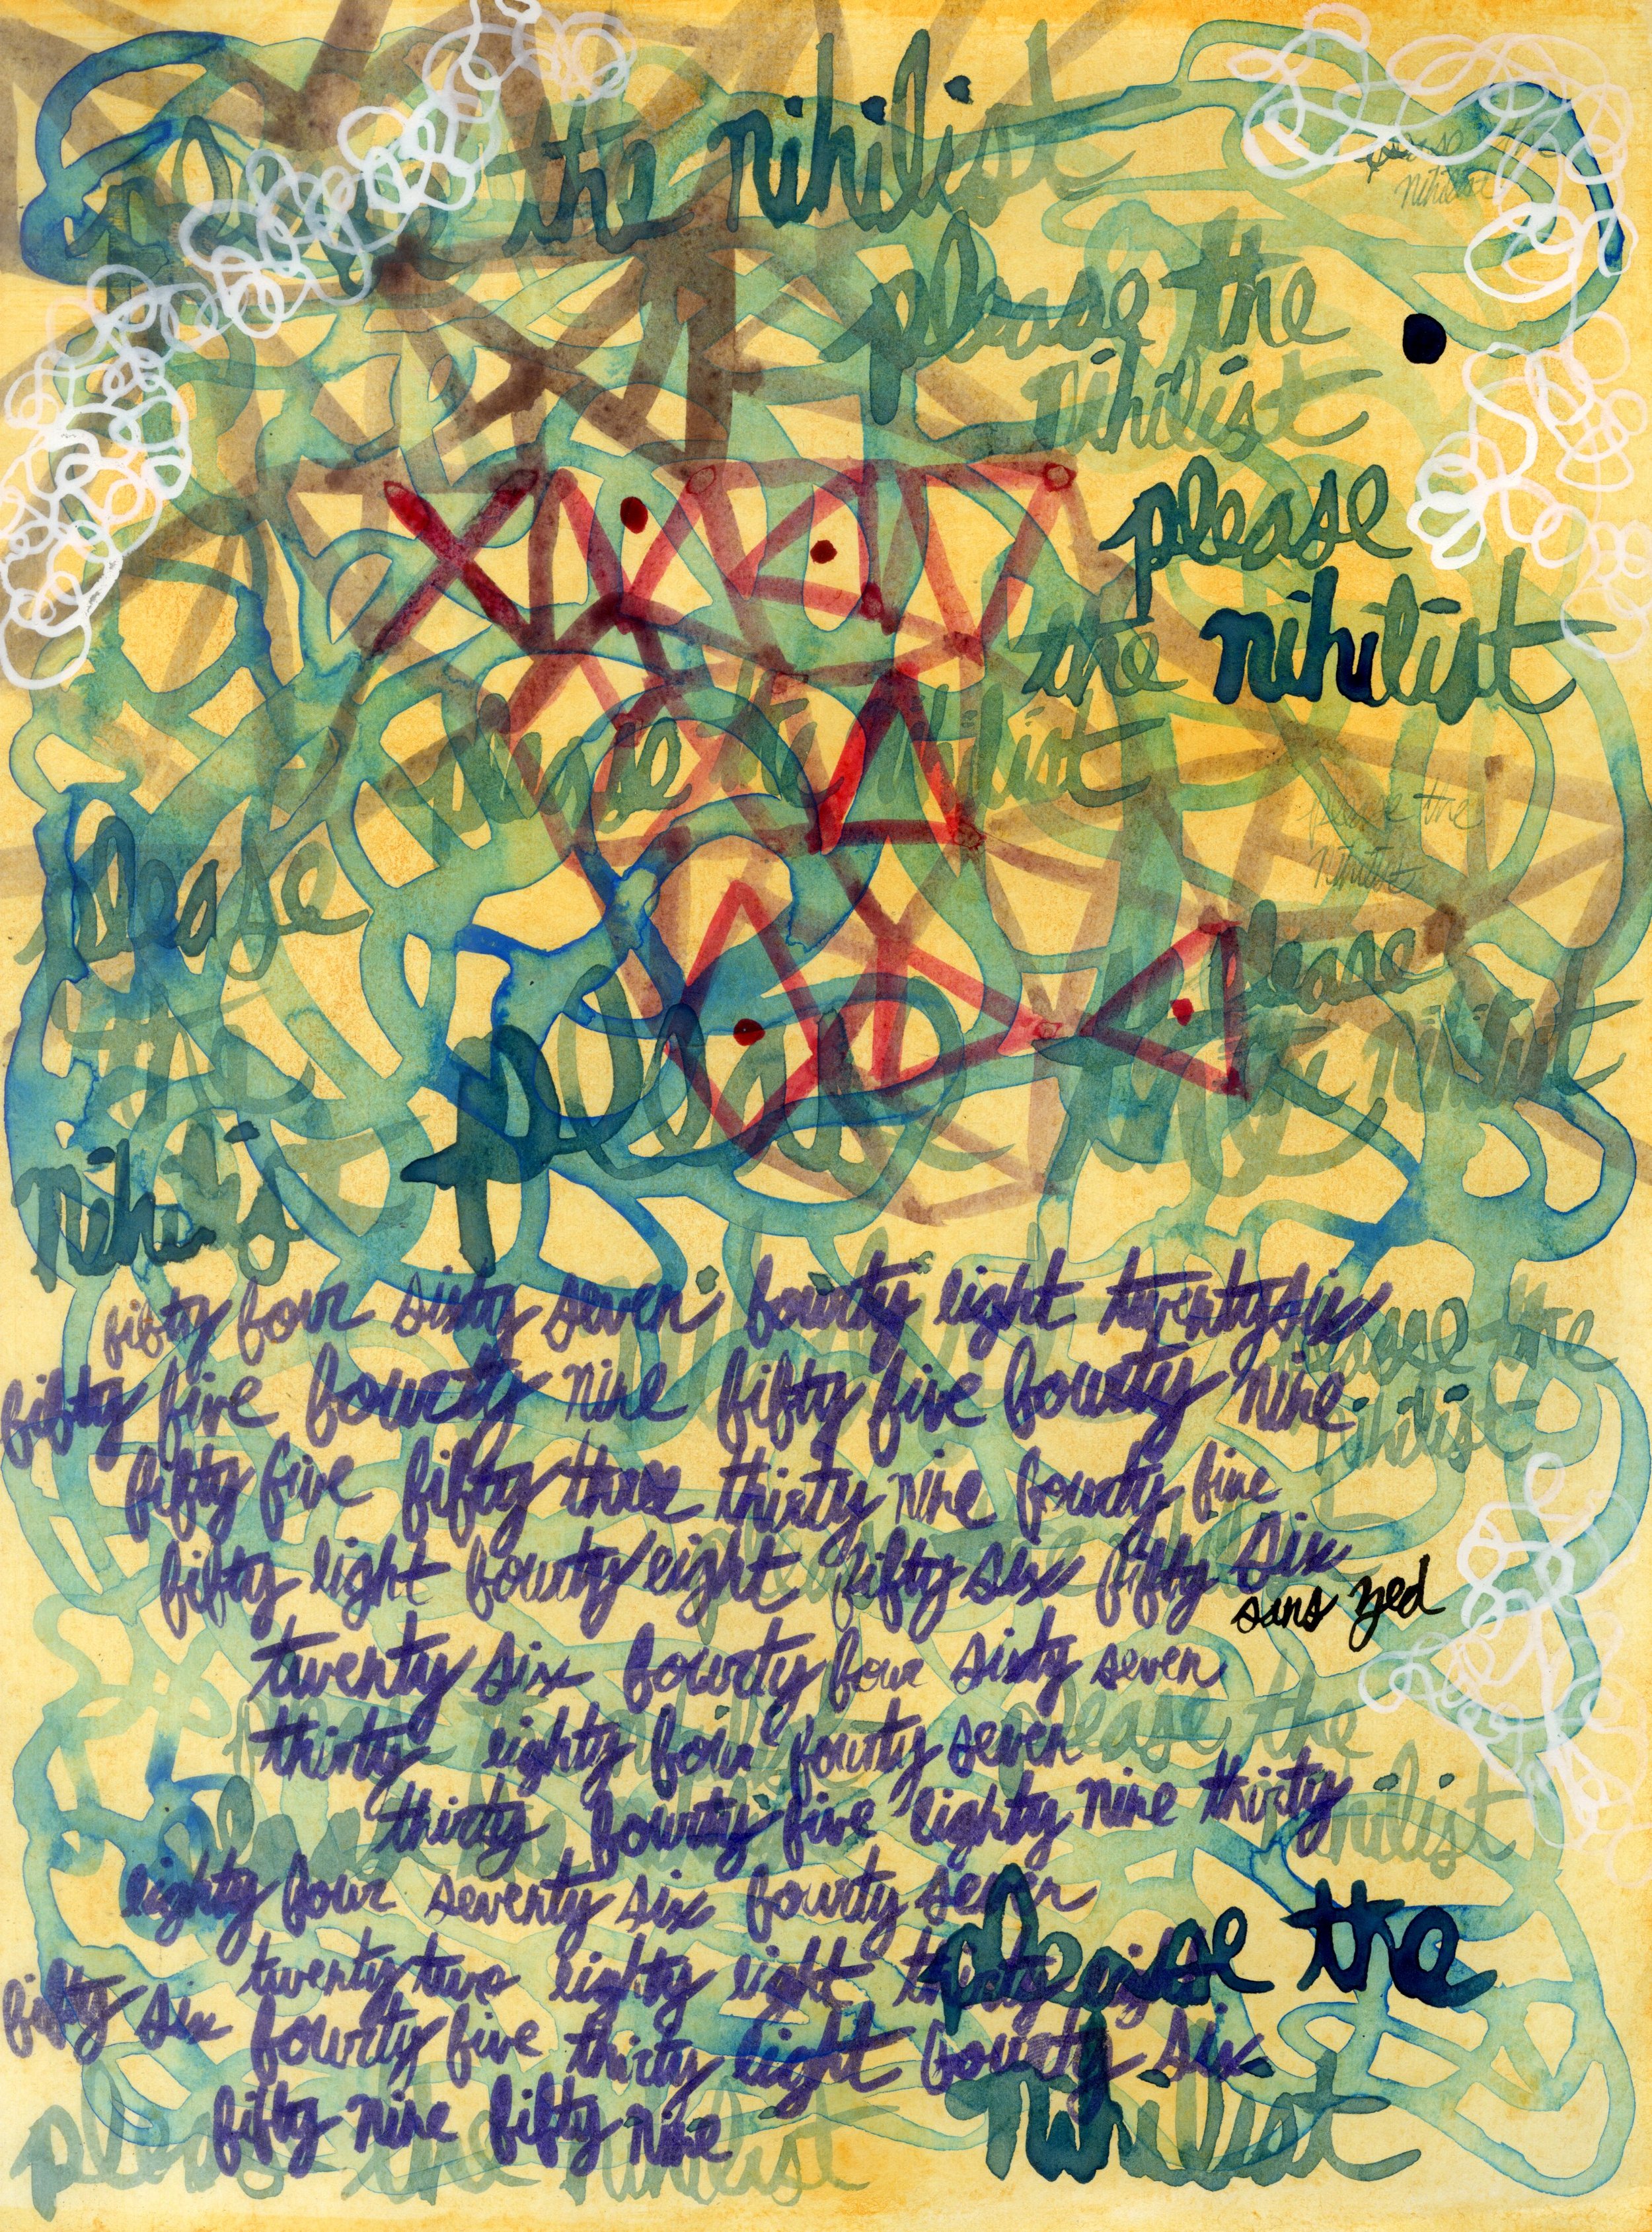 please the nihilist
please the
nihilist
please the
nihilist
please
the nihilist
please the nihilist
please the
nihilist
please
please
the nihilist
the
please
nihilis
fifty four sixty seven fourty eight twenty six
please the
fifty five fourty nine fifty five fourty nine
nihilist
fifty five fifty three thirty nine fourty five
fifty eight fourty eight fifty six fifty six
sans zed
twenty six fourty four sixty seven
please the
thirty eighty four fourty seven
thirty fourty five eighty nine thirty
nihilist
eighty four seventy six fourty seven
please the
twenty two eighty eight thirty eight
fifty six fourty five thirty eight fourty six
nihilist
fifty nine fifty nine
please the nihilist